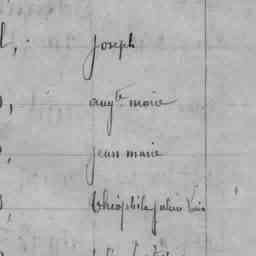 Joseph
aug.te marie
jean marie
théophile julien